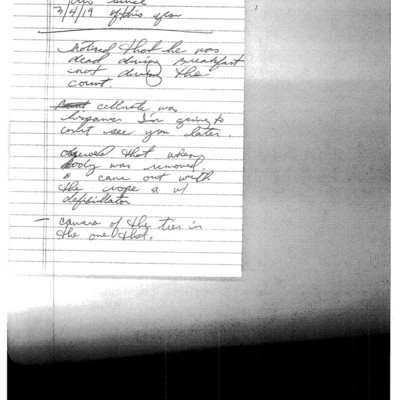 since
3/4/19 of this year
noticed that he was
dead during breakfast
not during the
count.
cellmate was
hispanic I'm going to
court see you later.
observed that when
body was removed
came out with
the rope & w/
defibillator
— camera of the tier in
the one that.